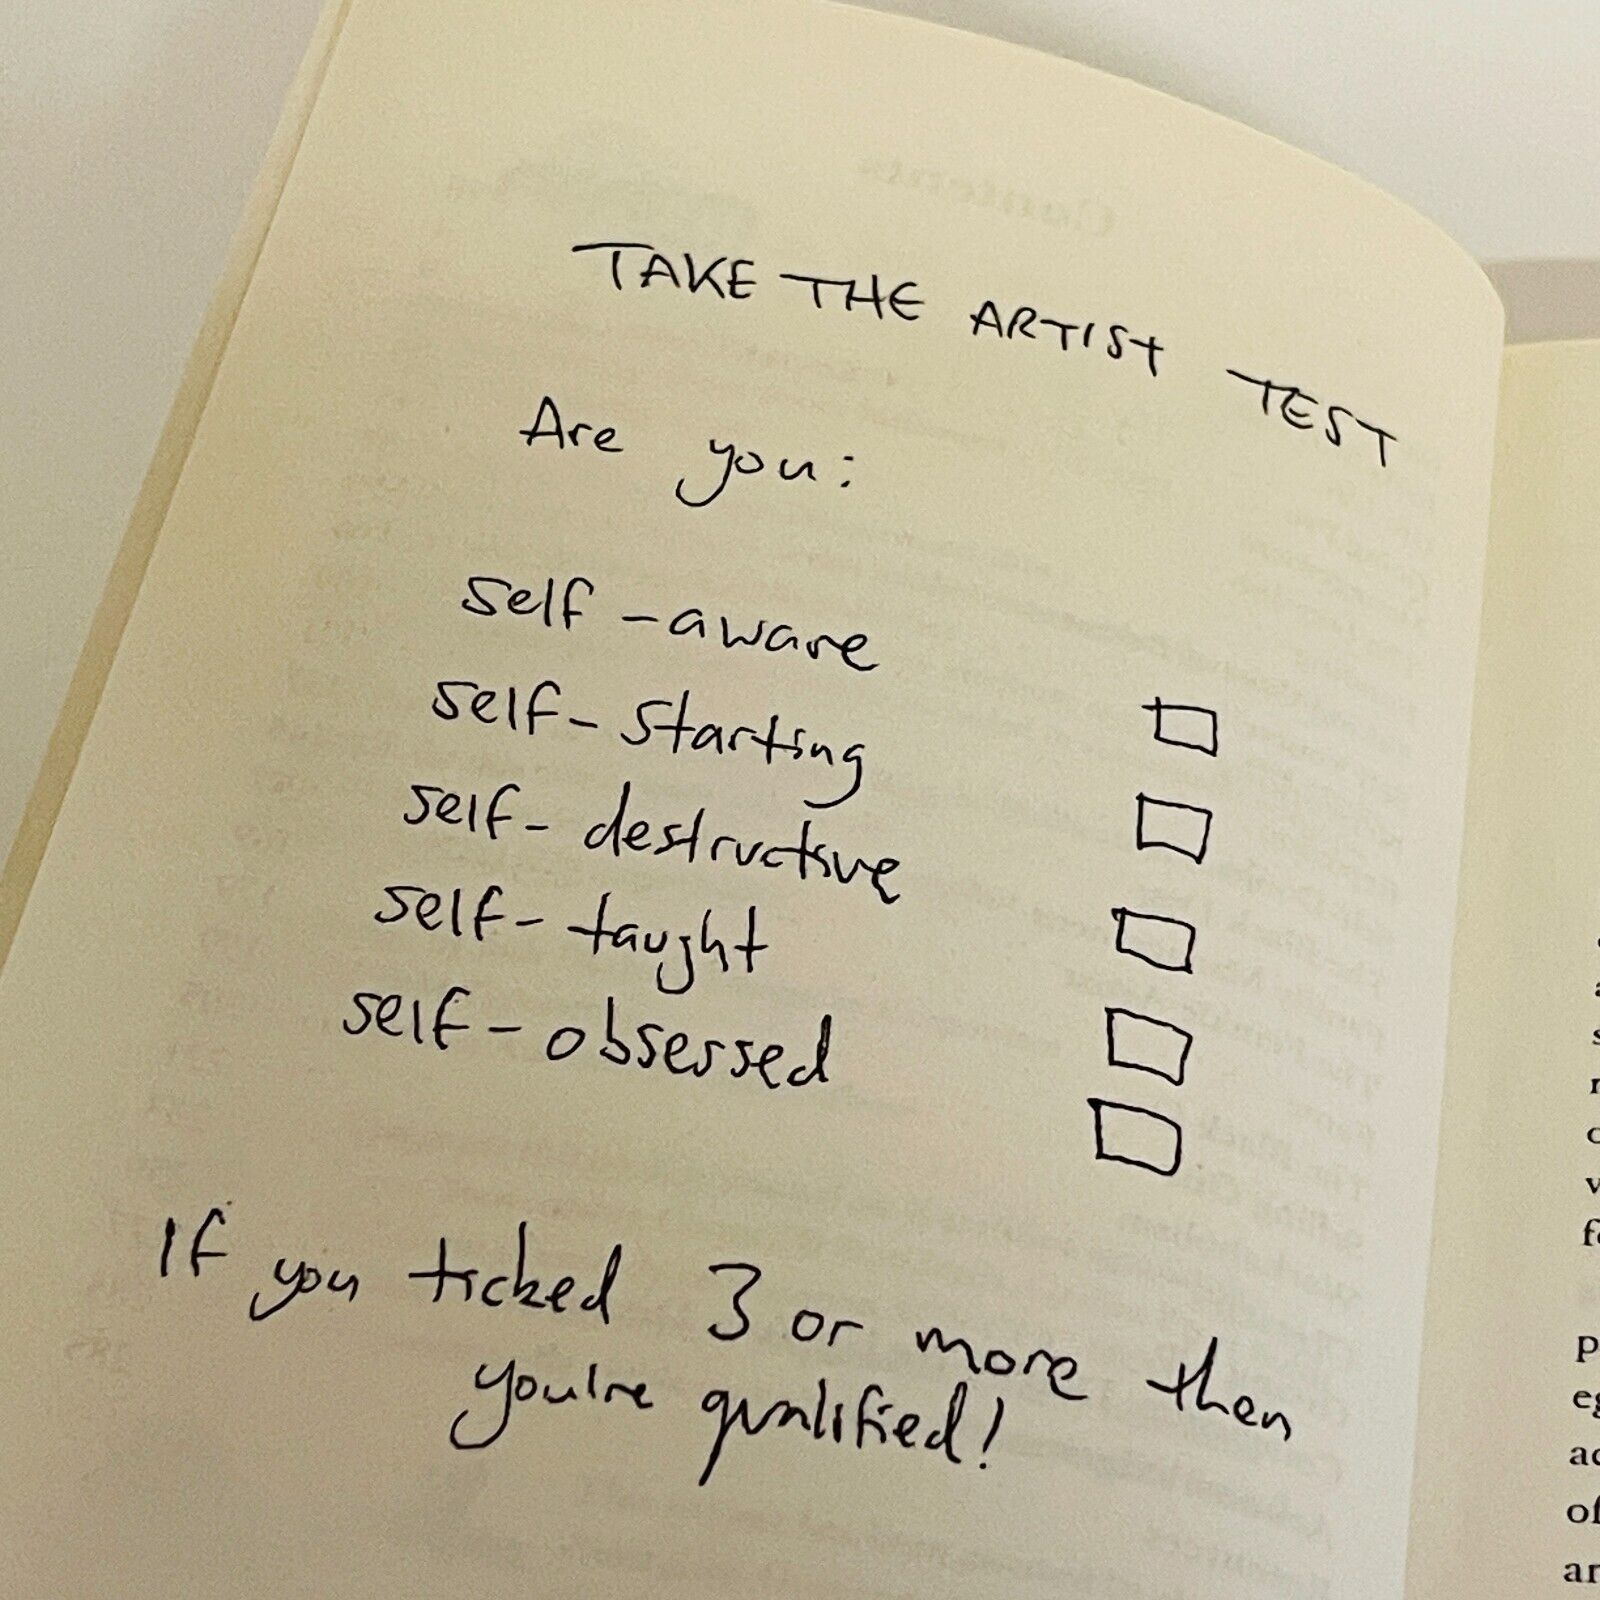 TAKE THE ARTIST TEST
Are you:
self-aware
self-starting
self-destructive
self-taught
self-obsessed
If you ticked 3 or more then
you're qualified!